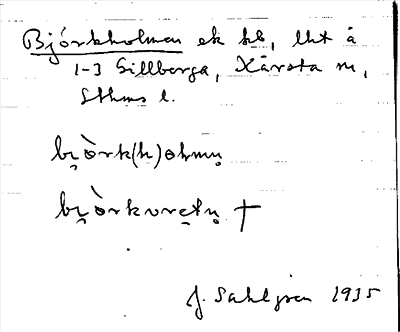 Björkholmen ek kb, lht å
1-3 Gillberga, Kårsta sn,
Sthms l.
bi̯òrk(h)ohmn̥
bi̯òrkvretn̥ †
J. Sahlgren 1935